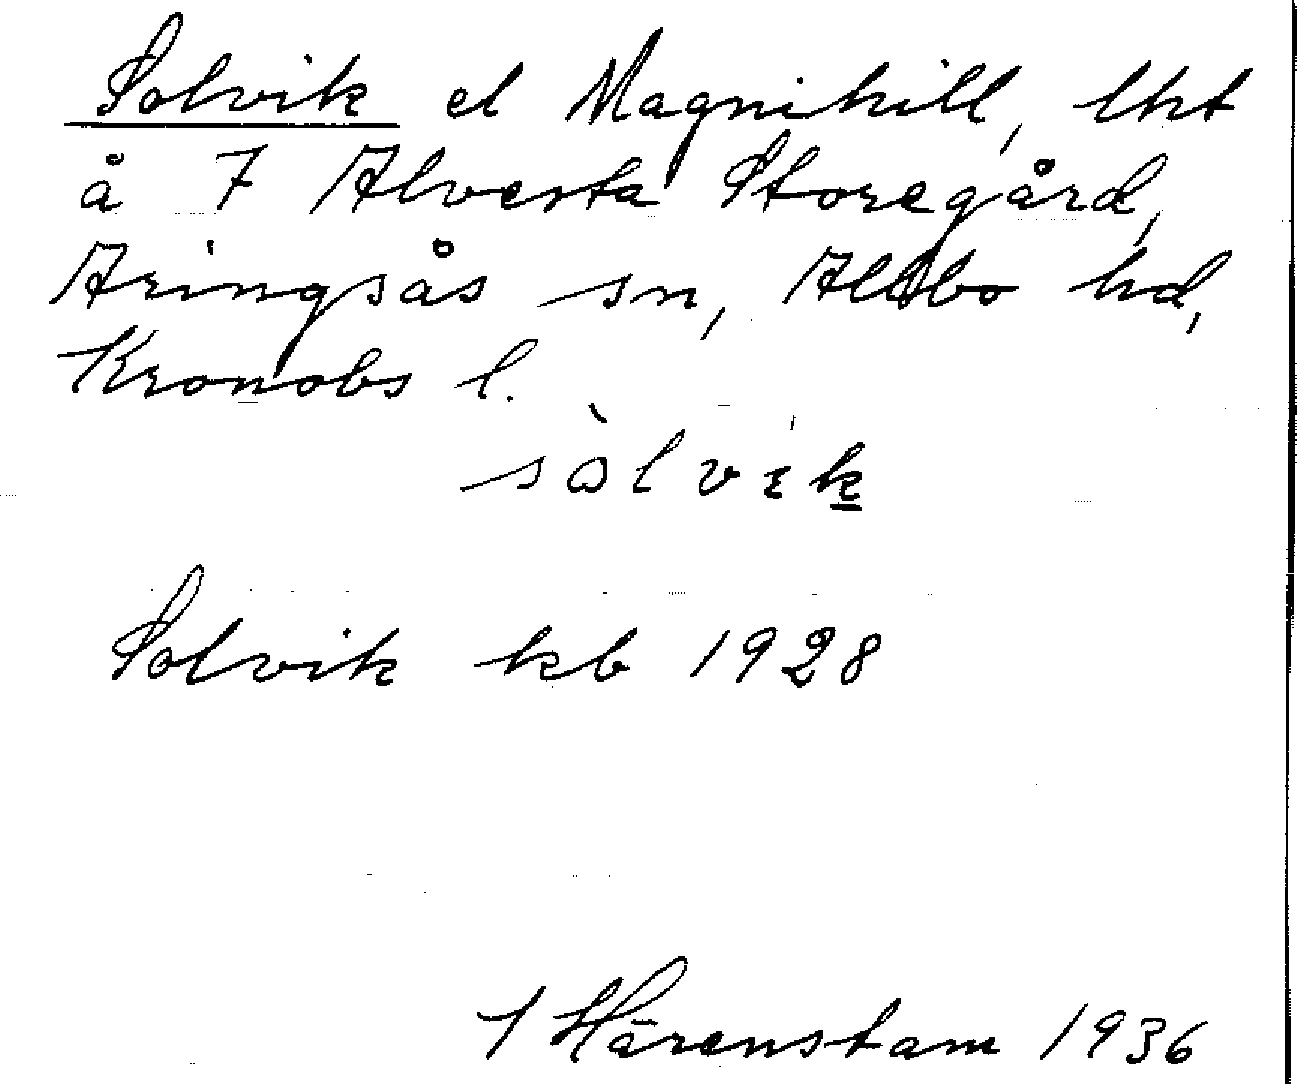 Solvik el Magnihill, lht
å 7 Alvesta Storegård,
Aringsås sn, Allbo hd,
Kronobs l.
sòlvik
Solvik kb 1928
Härenstam 1936